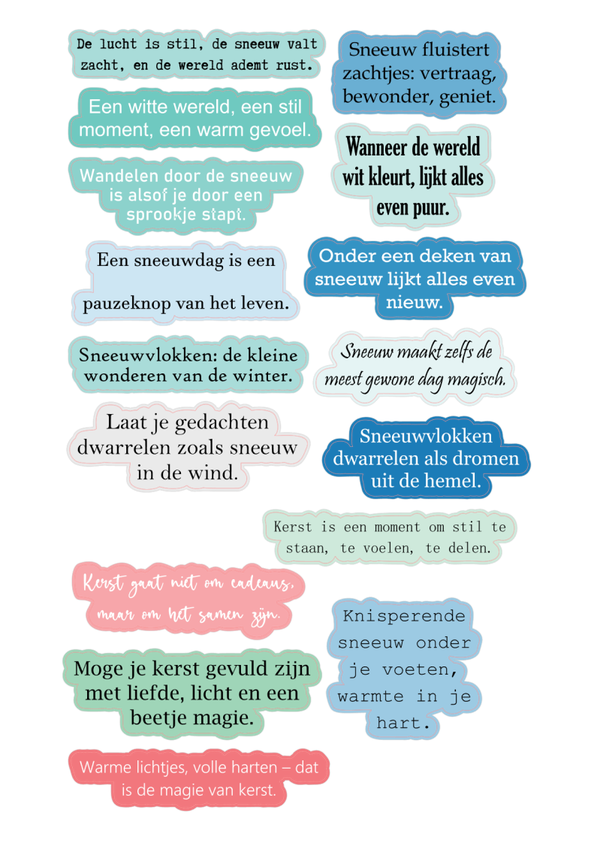 De lucht is stil, de sneeuw valt
zacht, en de wereld ademt rust.
Sneeuw fluistert
zachtjes: vertraag,
bewonder, geniet.
Een witte wereld, een stil
moment, een warm gevoel.
Wanneer de wereld
wit kleurt, lijkt alles
even puur.
Wandelen door de sneeuw
is alsof je door een
sprookje stapt.
Een sneeuwdag is een
pauzeknop van het leven.
Onder een deken van
sneeuw lijkt alles even
nieuw.
Sneeuwvlokken: de kleine
wonderen van de winter.
Sneeuw maakt zelfs de
meest gewone dag magisch.
Laat je gedachten
dwarrelen zoals sneeuw
in de wind.
Sneeuwvlokken
dwarrelen als dromen
uit de hemel.
Kerst is een moment om stil te
staan, te voelen, te delen.
Kerst gaat niet om cadeaus,
maar om het samen zijn.
Knisperende
sneeuw onder
je voeten,
warmte in je
hart.
Moge je kerst gevuld zijn
met liefde, licht en een
beetje magie.
Warme lichtjes, volle harten – dat
is de magie van kerst.